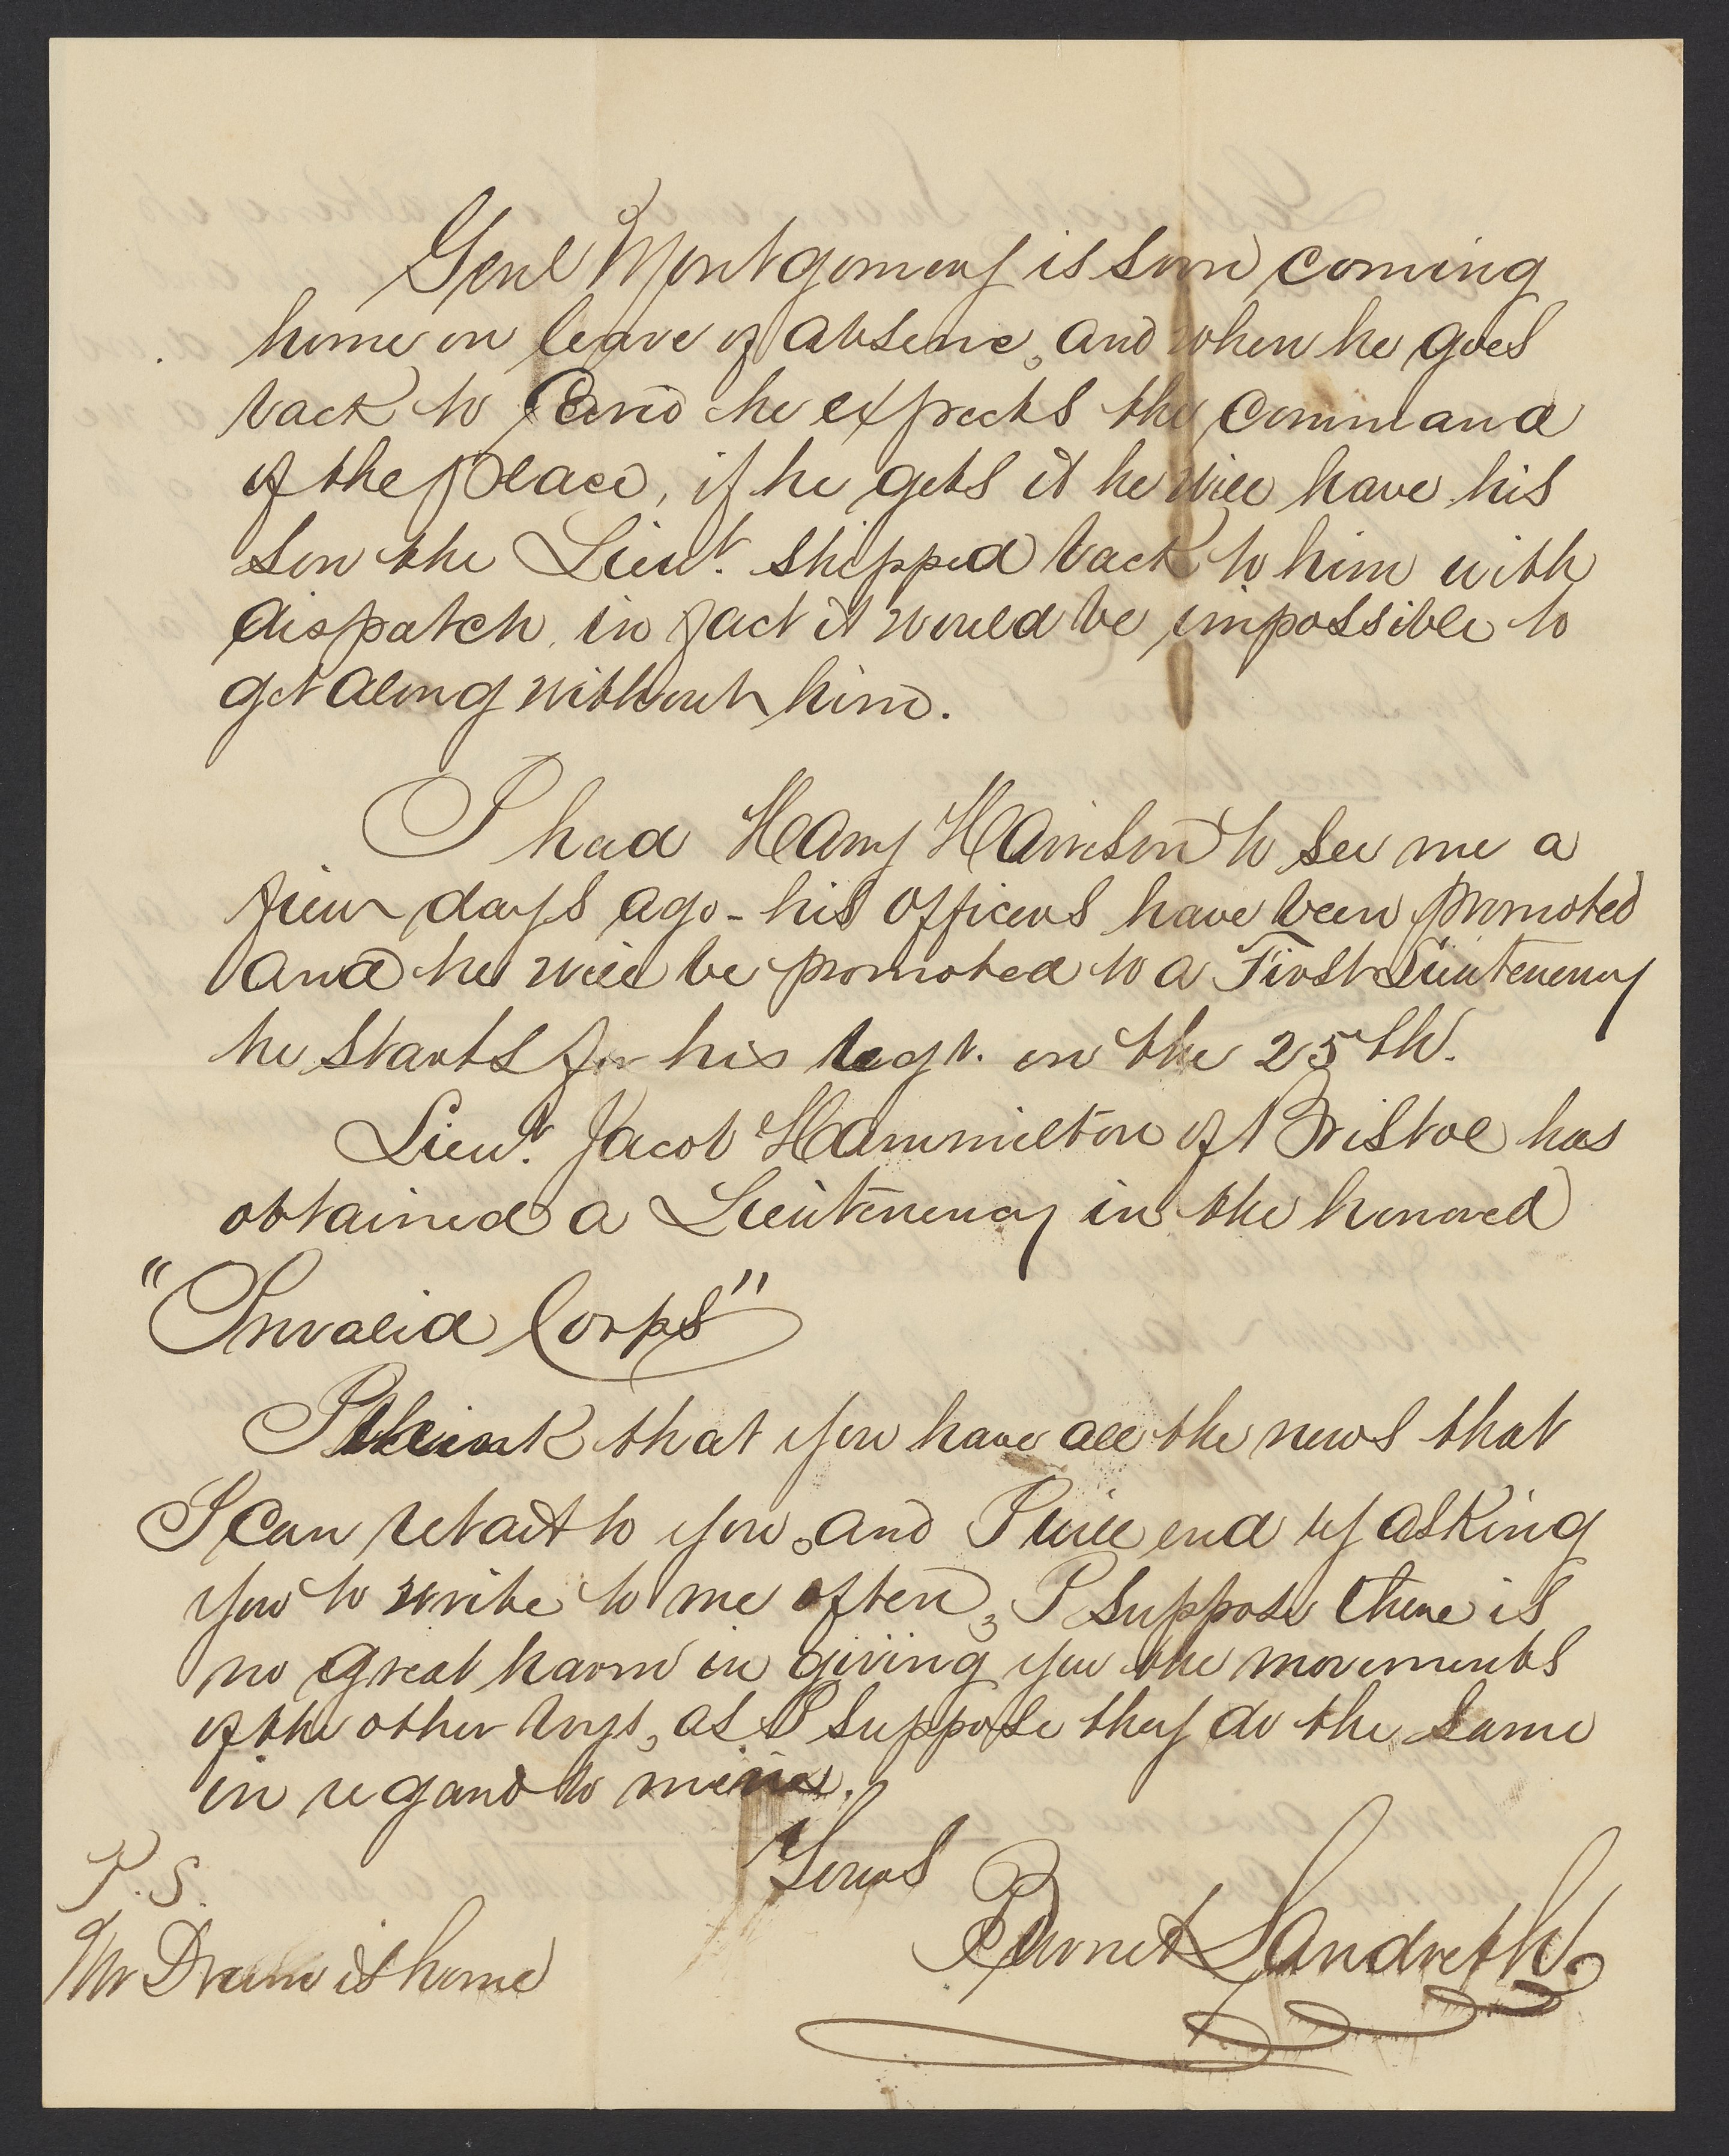 Genl Montgomery is soon coming
home on leave of absence, and when he goes
back to he expects the command
of the place, if he gets it he will have his
son the Lieut. shipped back to him with
dispatch, in fact it would be impossible to
get along without him.
I had Harry Harrison to see me a
few days ago - his officers have been promoted
and he will be promoted to a First Lieutenency
he starts for his regt. on the 25th.
Lieut. Jacob Hammilton of Bristol has
obtained a Lieutenency in the honored
"Invalid Corps"
I think that you have all the news that
I can retail to you, and I will end by asking
you to write to me often, I suppose there is
no great harm in giving you the movements
of the other boys, as I suppose they do the same
in regard to mine.
Yours
Burnet Landreth
P.S.
Mr is home